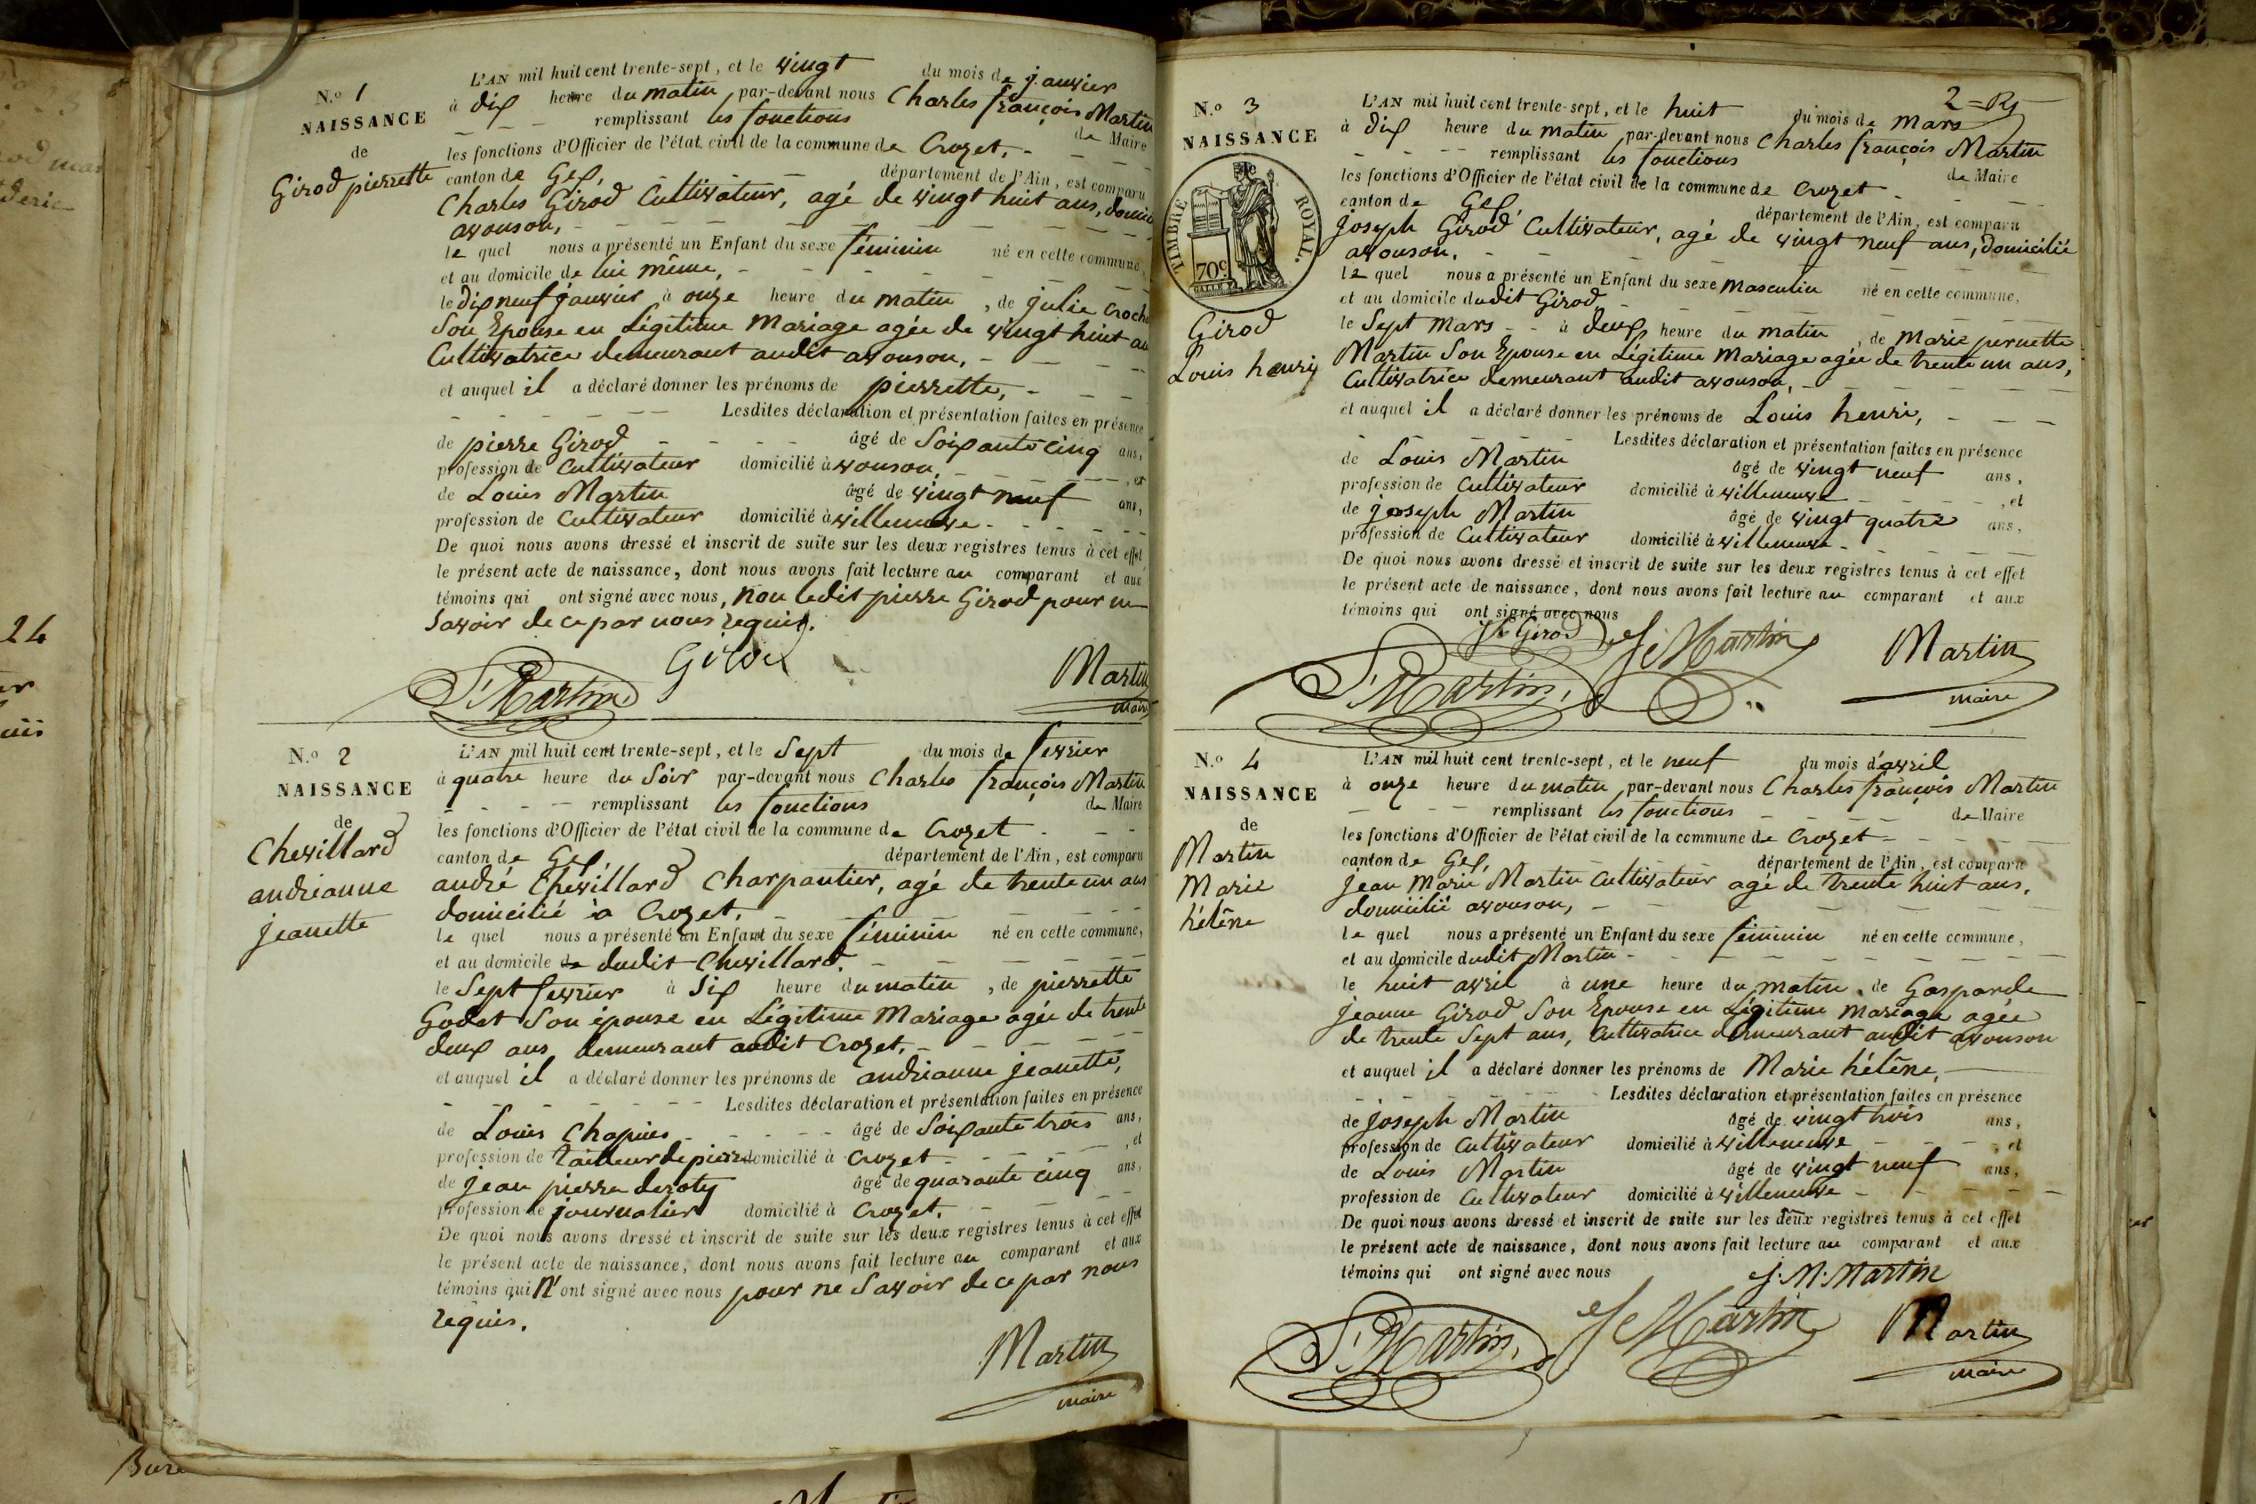 N.o 1
NAISSANCE
de
Girod pierrette
L'AN mil huit cent trente-sept, et le vingt du mois de janvier
à dix heure du matin par-devant nous Charles françois Martin
remplissant les fonctions de Maire
les fonctions d'Officier de l'état civil de la commune de Crozet,
canton de Gex, département de l'Ain, est comparu
Charles Girod Cultivateur, agé de vingt huit ans, domici
avouson,
le quel nous a présenté un Enfant du sexe féminin né en cette commune,
et au domicile de lui même,
le dix neuf janvier à onze heure du matin, de julie
Son Epouse en Légitime Mariage agée de vingt huit an
Cultivatrice demeurant audit avouson,
et auquel il a déclaré donner les prénoms de pierrette,
Lesdites déclaration et présentation faites en présence
de pierre Girod âgé de Soixante cinq ans,
profession de Cultivateur domicilié à vouson, et
de Louis Martin âgé de vingt neuf ans,
profession de Cultivateur domicilié à villeneuve
De quoi nous avons dressé et inscrit de suite sur les deux registres tenus à cet effet
le présent acte de naissance, dont nous avons fait lecture au comparant et aux
témoins qui ont signé avec nous, non ledit pierre Girod pour ne
Savoir de ce par nous requis.
Girod
L' Martin
Martin
maire
N.o 2
NAISSANCE
de
Chevillard
andrianne
jeanette
L'AN mil huit cent trente-sept, et le Sept du mois de fevrier
à quatre heure du Soir par-devant nous Charles françois Martin
remplissant les fonctions de Maire
les fonctions d'Officier de l'état civil de la commune de Crozet
canton de Gex, département de l'Ain, est comparu
andré Chevillard Charpantier, agé de trente un ans
domicilié à Crozet,
le quel nous a présenté un Enfant du sexe féminin né en cette commune,
et au domicile de dudit Chevillard,
le Sept fevrier à Six heure du matin, de pierrette
Godet Son épouse en Légitime Mariage agée de trente
deux ans demeurant audit Crozet,
et auquel il a déclaré donner les prénoms de andrianne jeanette,
Lesdites déclaration et présentation faites en présence
de Louis Chapuis âgé de Soixante trois ans,
profession de tailleur de pierre domicilié à Crozet, et
de jean pierre deroty âgé de quarante cinq ans,
profession de journalier domicilié à Crozet,
De quoi nous avons dressé et inscrit de suite sur les deux registres tenus à cet effet
le présent acte de naissance, dont nous avons fait lecture au comparant et aux
témoins qui N'ont signé avec nous pour ne Savoir de ce par nous
requis.
Martin
maire
N.o 3
NAISSANCE
TIMBRE ROYAL.
70c.
Girod
Louis henry
L'AN mil huit cent trente-sept, et le huit du mois de mars
à dix heure du matin par-devant nous Charles françois Martin
remplissant les fonctions de Maire
les fonctions d'Officier de l'état civil de la commune de Crozet
canton de Gex, département de l'Ain, est comparu
joseph Girod Cultivateur, agé de vingt neuf ans, domicilié
avouson,
le quel nous a présenté un Enfant du sexe Masculin né en cette commune,
et au domicile dudit Girod
le Sept mars à deux heure du matin, de Marie pernette
Martin Son Epouse en Légitime Mariage agée de trente un ans,
Cultivatrice demeurant audit avouson,
et auquel il a déclaré donner les prénoms de Louis henri,
Lesdites déclaration et présentation faites en présence
de Louis Martin âgé de vingt neuf ans,
profession de Cultivateur domicilié à villeneuve, et
de joseph Martin âgé de vingt quatre ans,
profession de Cultivateur domicilié à villeneuve
De quoi nous avons dressé et inscrit de suite sur les deux registres tenus à cet effet
le présent acte de naissance, dont nous avons fait lecture au comparant et aux
témoins qui ont signé avec nous
Girod
Martin
L' Martin.
Martin
maire
N.o 4
NAISSANCE
de
Martin
Marie
hélène
L'AN mil huit cent trente-sept, et le neuf du mois d'avril
à onze heure du matin par-devant nous Charles françois Martin
remplissant les fonctions de Maire
les fonctions d'Officier de l'état civil de la commune de Crozet
canton de Gex, département de l'Ain, est comparu
jean Marie Martin Cultivateur agé de trente huit ans,
domicilié avouson,
le quel nous a présenté un Enfant du sexe féminin né en cette commune,
et au domicile dudit Martin
le huit avril à une heure du matin, de Gasparde
jeanne Girod Son Epouse en Légitime Mariage agée
de trente Sept ans, Cultivatrice demeurant audit avouson
et auquel il a déclaré donner les prénoms de Marie hélène,
Lesdites déclaration et présentation faites en présence
de joseph Martin âgé de vingt trois ans,
profession de Cultivateur domicilié à villeneuve, et
de Louis Martin âgé de vingt neuf ans,
profession de Cultivateur domicilié à villeneuve
De quoi nous avons dressé et inscrit de suite sur les deux registres tenus à cet effet
le présent acte de naissance, dont nous avons fait lecture au comparant et aux
témoins qui ont signé avec nous
J. M. Martin
L' Martin.
Martin
Martin
maire